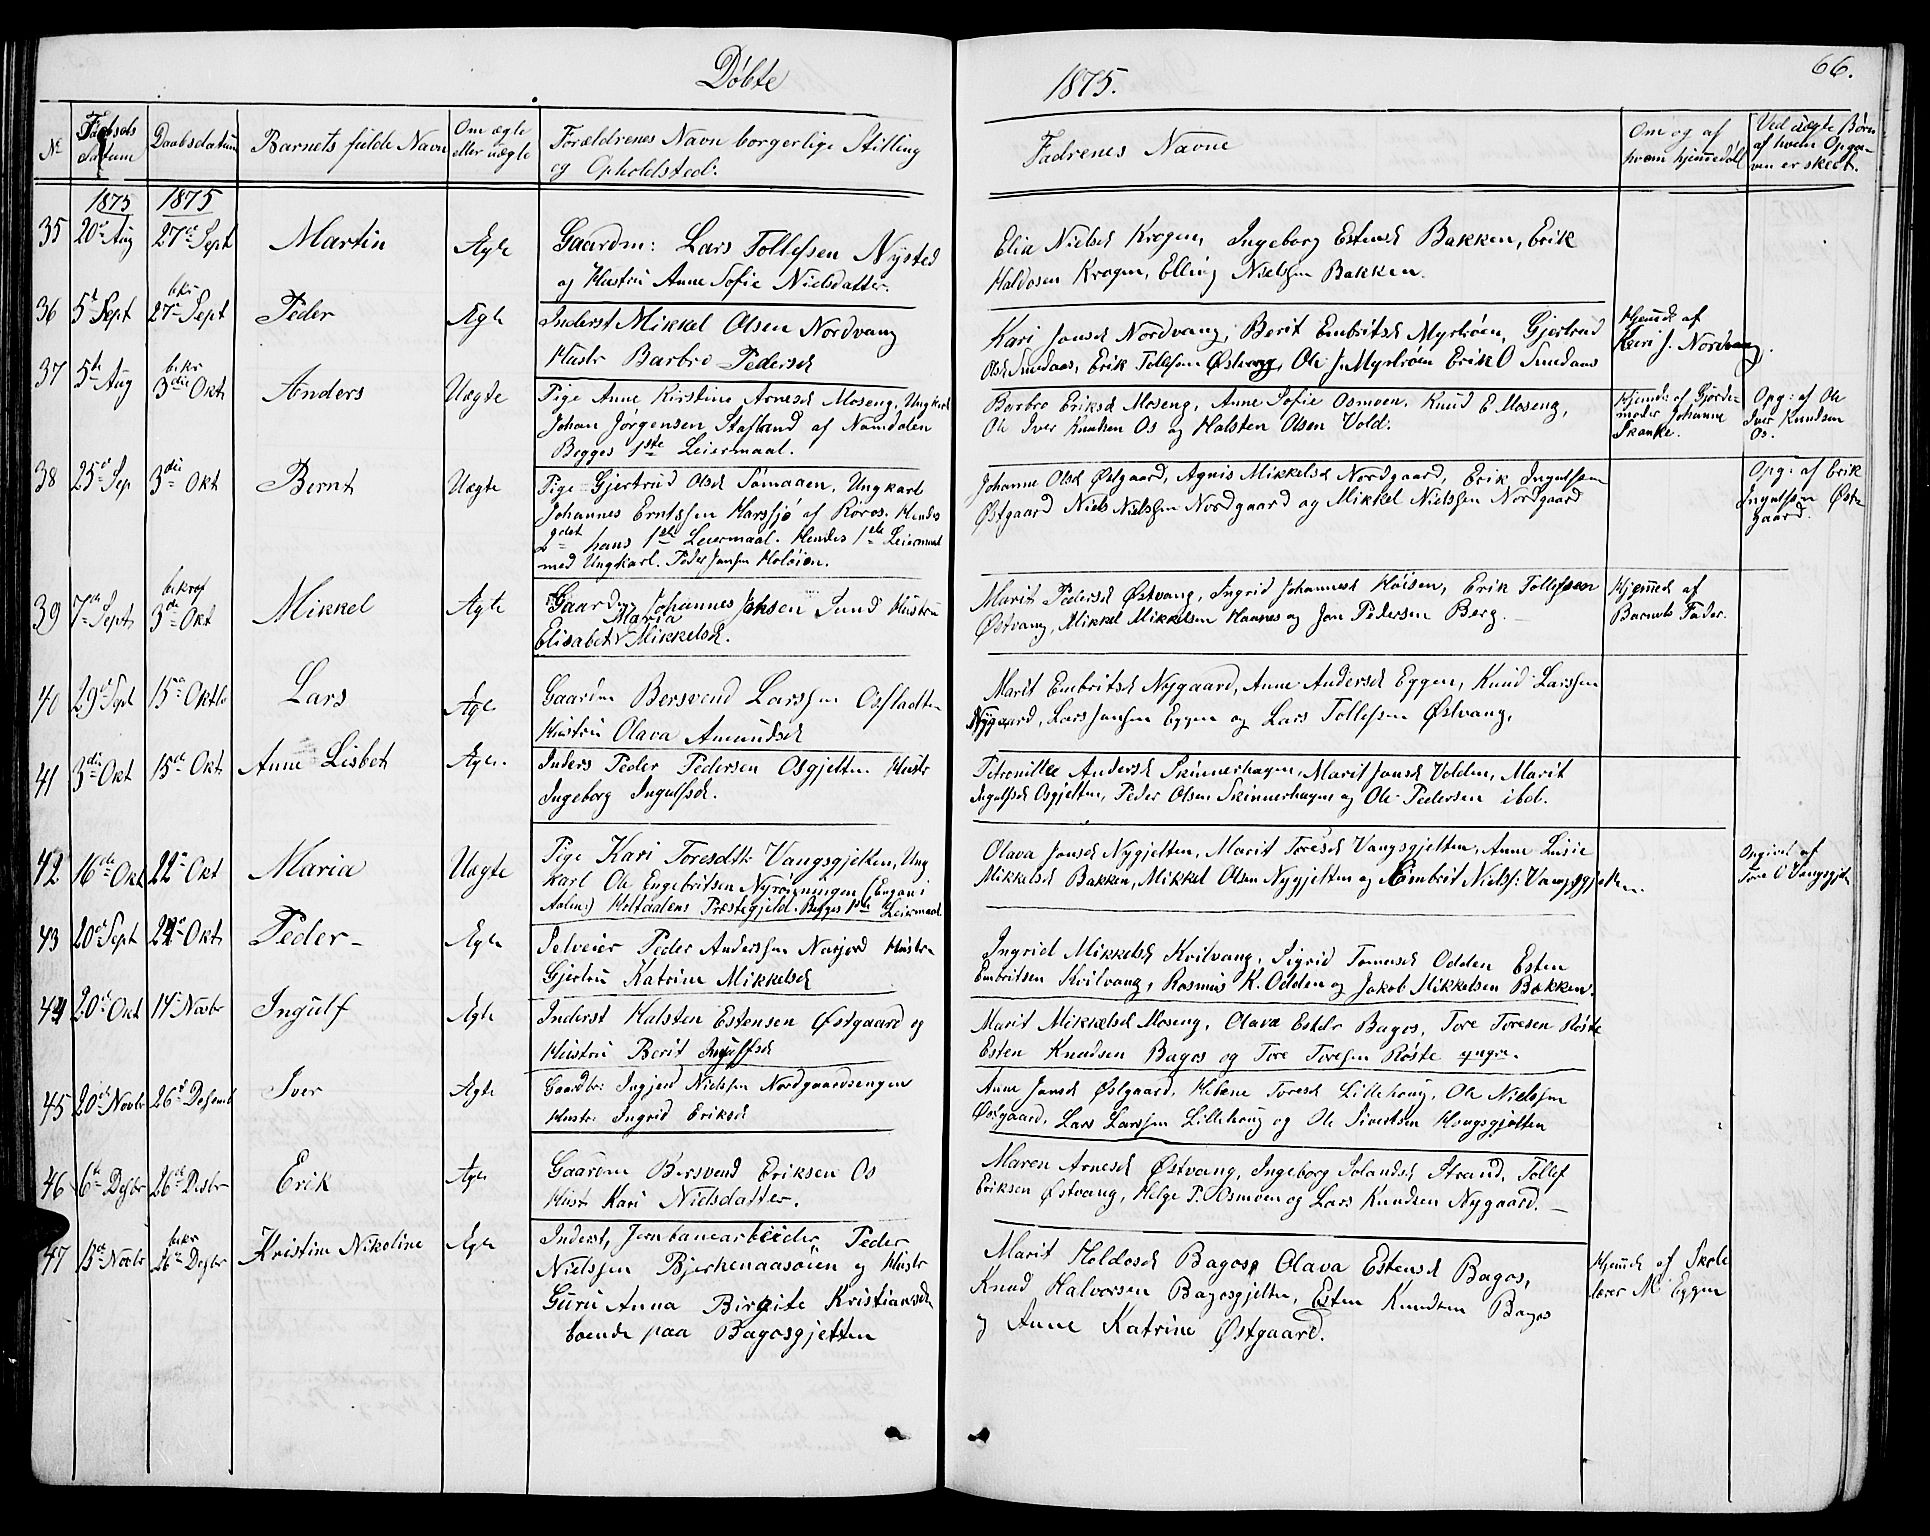 Döbte
1875.
66.
No
Födsels Datum
Daabsdatum
Barnets fulde Navn
Om ægte eller uægte
Forældrenes Navn borgerlige Stilling og Opholdsted.
Fadrenes Navne
Om og af hvem hjemmedöbt
Ved uægte Börn af hvem Opga- ven er skeet.
1875
1875
35 20de Aug 27de Sept Martin Ægte
Gaardm: Lars Tollefsen Nysted
og Hustru Anne Sofie Nielsdatter.
Elia Nielsd Krogen, Ingeborg Estensd Bakken, Erik
Haldosen Krogen, Elling Nielsen Bakken.
36 5te Sept bekr 27de Sept Peder Ægte
Inderst Mikkel Olsen Nordvang
Hustr Barbro Pedersd
Kari Jonsd Nordvang, Berit Embritsd Myrtröen, Gjertrud
Olsd Sundaas, Erik Tollefsen Østvang, Ole J. Myrtröen Erik O Sundaas
Hjemdt af
Kari J. Nordvang.
37 5te Aug bekr 3die Okt Anders Uægte
Pige Anne Kirstine Arnesd Moseng, Ungkarl
Johan Jörgensen Stafland af Namdalen
Begges 1ste Leiermaal.
Barbro Eriksd Moseng, Anne Sofie Osmoen, Knud E Moseng,
Ole Iver Knudsen Os og Halsten Olsen Vold.
Hjemdt af Gjorde-
moder Johanne
Skanke.
Opg: af Ole
Iver Knudsen
Os.
38 25de Sep 3die Okt Bernt Uægte
Pige Gjertrud Olsd Sömaaen, Ungkarl
Johannes Erntssen Harssjö af Röros. Hendes
2det hans 1ste Leiermaal. Hendes 1ste Leiermaal
med Ungkarl. Peder Jonsen Holöien.
Johanne Olsd Østgaard, Agnis Mikkelsd Nordgaard, Erik Ingulfsen
Østgaard Niels Nielsen Nordgaard og Mikkel Nielsen Nordgaard
Opg: af Erik
Ingulfsen Øst-
gaard.
39 7de Sept bekræf 3die Okt Mikkel Ægte
Gaardm Johannes Johsen Sund Hustru
Maria
Elisabet Mikkelsd.
Marit Pedersd Østvang, Ingrid Johannesd Höisen, Erik Tollefsen
Østvang, Mikkel Mikkelsen Hannes og Jon Pedersen Berg.
Hjemmed af
Barnets Fader.
40 29de Sept 15de Oktb Lars Ægte
Gaardm Bersvend Larssen Osstadten
Hustru Olava Amundsd
Marit Embritsd Nygaard, Anne Andersd Eggen, Knud Larssen
Nygaard, Lars Jonsen Eggen og Lars Tollefsen Østvang.
41 3die Okt 15de Okt Anne Lisbet Ægte
Inders Peder Pedersen Osgjelten Hustr
Ingeborg Ingulfsd.
Petronille Andersd Skinnerhagen, Marit Jonsd Volden, Marit
Ingulfsd Osgjelten, Peder Olsen Skinnerhagen og Ole Pedersen ibd.
42 16de Okt 22de Okt Maria Uægte
Pige Kari Toresdtr Vangsgjelten, Ung
karl Ole Engebritsen Nyrönningen (Engan i
Aalen) Holtaalens Præstegjeld. Begges 1ste Leiermaal
Olava Jonsd Nygjelten, Marit Toresd Vangsgjelten, Anne Lusie
Mikkelsd Bakken, Mikkel Olsen Nygjelten og Embrit Niels: Vangsgjelten.
Opgivet af
Tore O Vangsgjelt
43 20de Sept 24de Okt Peder Ægte
Selveier Peder Anderssen Narjord Hustru
Gjertru Katrine Mikkelsd
Ingrid Mikkelsd Kvilvang, Sigrid Tomasd Odden Esten
Embritsen Kvilvang, Rasmus K. Odden og Jakob Mikkelsen Bakken.
44 20de Okt 14de Novbr Ingulf Ægte
Inderst Halsten Estensen Østgaard og
Hustru Berit Ingulfsd
Marit Mikkelsd Moseng, Olava Estdr Bagos, Tore Toresen Röste
Esten Knudsen Bagos og Tore Toresen Röste yngre.
45 20de Novbr 26de Desemb Iver Ægte
Gaardbr: Ingjerd Nielsen Nordgaardsengen
Hustr: Ingrid Eriksd
Anne Jonsd Østgaard, Helene Toresd Lillehoug, Ole Nielsen
Østgaard, Lars Larssen Lillehoug og Ole Sivertsen Hougsgjelten
46 6te Desbr 26de Desbr Erik Ægte
Gaardm Bersvend Eriksen Os
Hustr Kari Nielsdatter.
Maren Arnesd Østvang, Ingeborg Jolandsd Strand, Tollef
Eriksen Østvang, Helge P. Osmoen og Lars Knudsen Nygaard.
47 13de Novbr bekr 26de Desbr Kristine Nikoline Ægte
Inderst, Jernbanearbeider Peder
Nielsen Bjerkenaasöien og Hustr
Guru Anna Birgite Kristiansd
boende paa Bagosgjelten
Marit Holdosd Bagos, Olava Estensd Bagos,
Knud Halvorsen Bagosgjelten, Esten Knudsen Bagos
og Anne Katrine Østgaard.
Hjemdt af Skole
lærer M. Eggen